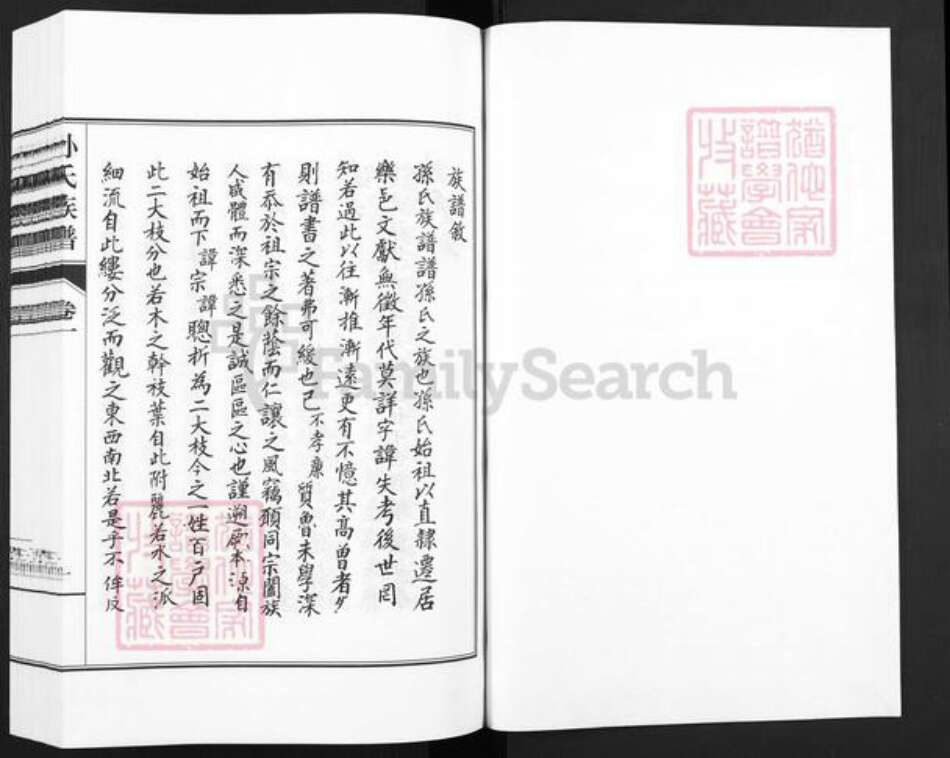 族譜敘
孫氏族譜譜孫氏之族也孫氏始祖以直隸遷居
樂邑文獻無徵年代莫詳字諱失考後世罔
知若過此以往漸推漸遠更有不憶其高曾者矣
則譜書之著弗可緩也己不孝廉質魯未學深
有忝於祖宗之餘蔭而仁讓之風竊願同宗闔族
人咸體而深悉之是誠區區之心也謹遡厥本源自
始祖而下諱宗諱聰析為二大枝今之一姓百戶固
此二大枝分也若木之幹枝葉自此附麗若水之派
細流自此縷分泛而觀之東西南北若是乎不侔反
孙氏族譜
卷一
FamilySearch
猶他家
譜學會
收藏
猶他家
譜學會
收藏